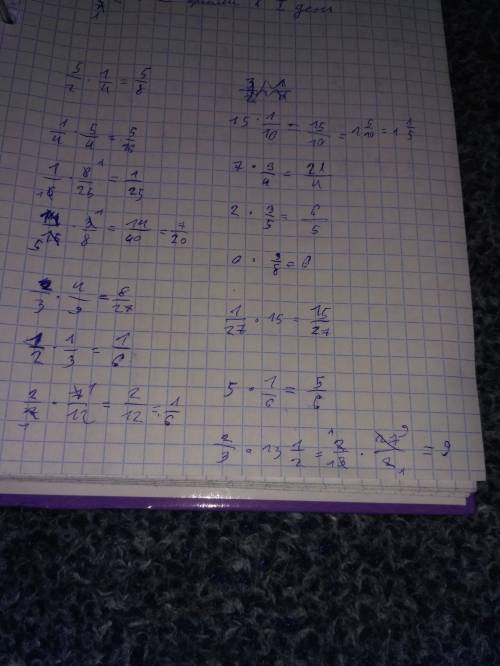 5/2 · 1/4 = 5/8
1/4 · 5/4 = 5/16
1/16 · 8/25 = 1/25
14/15 · 3/8 = 14/40 = 7/20
2/3 · 4/9 = 6/27
1/2 · 1/3 = 1/6
2/7 · 7/12 = 2/12 = 1/6
15 · 1/10 = 15/10 = 1 5/10 = 1 1/5
7 · 3/4 = 21/4
2 · 3/5 = 6/5
0 · 3/8 = 0
1/27 · 15 = 15/27
5 · 1/6 = 5/6
2/3 · 13 1/2 = 2/13 · 27/2 = 9